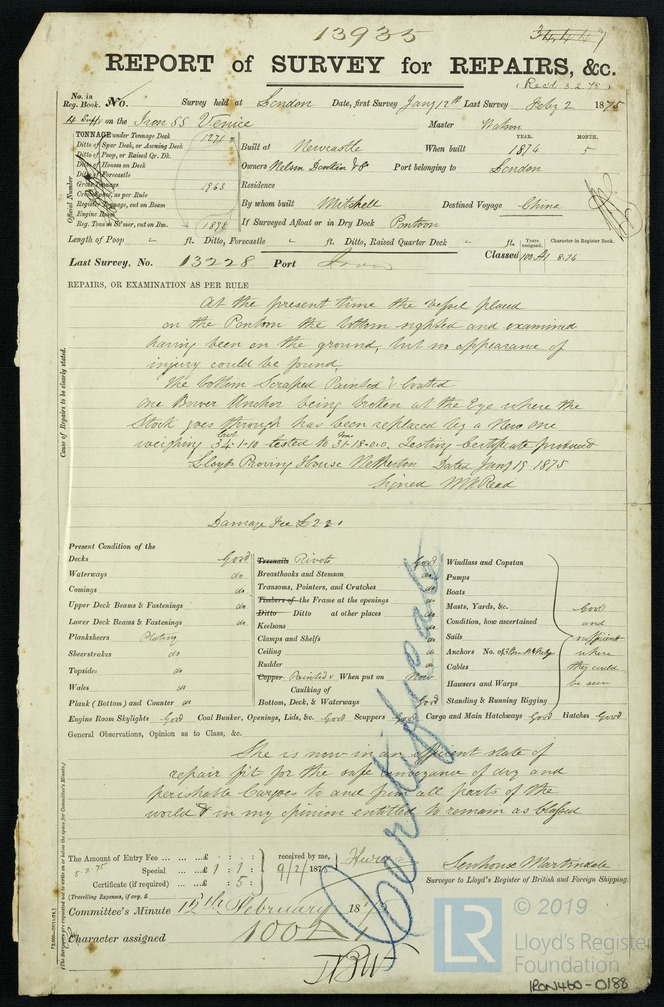 13935
34447
REPORT of SURVEY for REPAIRS, &c.
(Recd 3.2.75)
No. in Reg. Book. No. Survey held at London Date, first Survey Jany 12th Last Survey Feby 2 1875
on the Iron SS Venice Master
TONNAGE under Tonnage Deck 1271
Ditto of Spar Deck, or Awning Deck
Ditto of Poop, or Raised Qr. Dk.
Ditto of Houses on Deck
Ditto of Forecastle
Gross Tonnage
Crew Space, as per Rule
Register Tonnage, cut on Beam
Engine Room
Reg. Tons if St'mer, cut on Bm.
Official Number
YEAR. MONTH.
Built at Newcastle When built 1874 5
Owners Nelson Donkin & Co Port belonging to London
Residence
By whom built Mitchell Destined Voyage China
If Surveyed Afloat or in Dry Dock Pontoon
Length of Poop " ft. Ditto, Forecastle " ft. Ditto, Raised Quarter Deck " ft.
Years assigned. Character in Register Book.
Classed 100 A1 8.74
Last Survey, No. 13228 Port Iron
REPAIRS, OR EXAMINATION AS PER RULE
Cause of Repairs to be clearly stated.
At the present time the Vessel placed
on the Pontoon the bottom sighted and examined
having been on the ground, but no appearance of
injury could be found.
The bottom Scraped Painted & Coated
One Bower Anchor being broken at the Eye where the
Stock goes through has been replaced by a New One
weighing 34-1-10 tested to 31-18-0-0. Testing Certificate produced
Lloyds Proving House Netherton Dated Jany 19 1875
Signed
Damage Fee £2 2
Present Condition of the
Decks Good
Waterways do
Comings do
Upper Deck Beams & Fastenings do
Lower Deck Beams & Fastenings do
Planksheers Plating
Sheerstrakes do
Topsides do
Wales do
Plank (Bottom) and Counter do
Engine Room Skylights Good Coal Bunker, Openings, Lids, &c. Good Scuppers Good Cargo and Main Hatchways Good Hatches Good
Treenails Rivets Good
Breasthooks and Stemson do
Transoms, Pointers, and Crutches do
Timbers of the Frame at the openings do
Ditto Ditto at other places do
Keelsons do
Clamps and Shelfs do
Ceiling do
Rudder do
Copper Painted & When put on Now
Caulking of
Bottom, Deck, & Waterways Good
Windlass and Capstan
Pumps
Boats
Masts, Yards, &c.
Condition, how ascertained
Sails
Anchors No. of
Cables
Hawsers and Warps
Standing & Running Rigging
Good
and
sufficient
where
they could
be seen
General Observations, Opinion as to Class, &c.
She is now in an efficient state of
repair fit for the safe conveyance of dry and
perishable Cargoes to and from all parts of the
world & in my opinion entitled to remain as Classed
Certificate
The Amount of Entry Fee ... ... ... £ : :
Special ... ... £ 1 : 1 :
Certificate (if required) ... £ : 5 :
(Travelling Expenses, if any, £
5 2 75
received by me,
9/2/1875
Senhouse Martindale
Surveyor to Lloyd's Register of British and Foreign Shipping.
Committee's Minute 12th February 1875
Character assigned 100A
© 2019
LR Lloyd's Register
Foundation
IRON460-0188